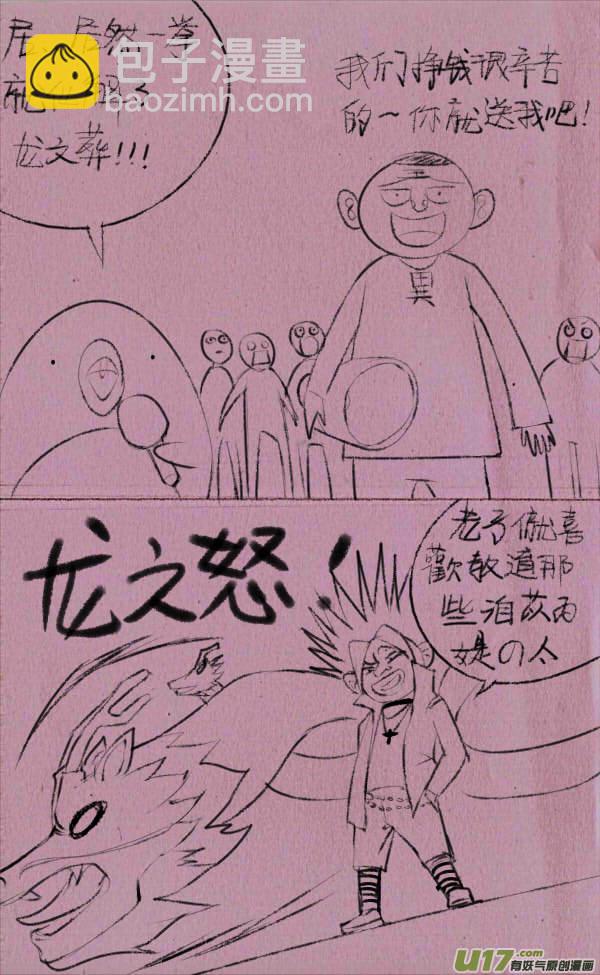 居、居然一掌
龙之葬!!!
包子漫畫
baozimh.com
我们挣钱很辛苦
的~你就送我吧!
異
龙之怒!
老子就喜
歡教道那
些泪
の人
U17.com
有妖气原创漫画